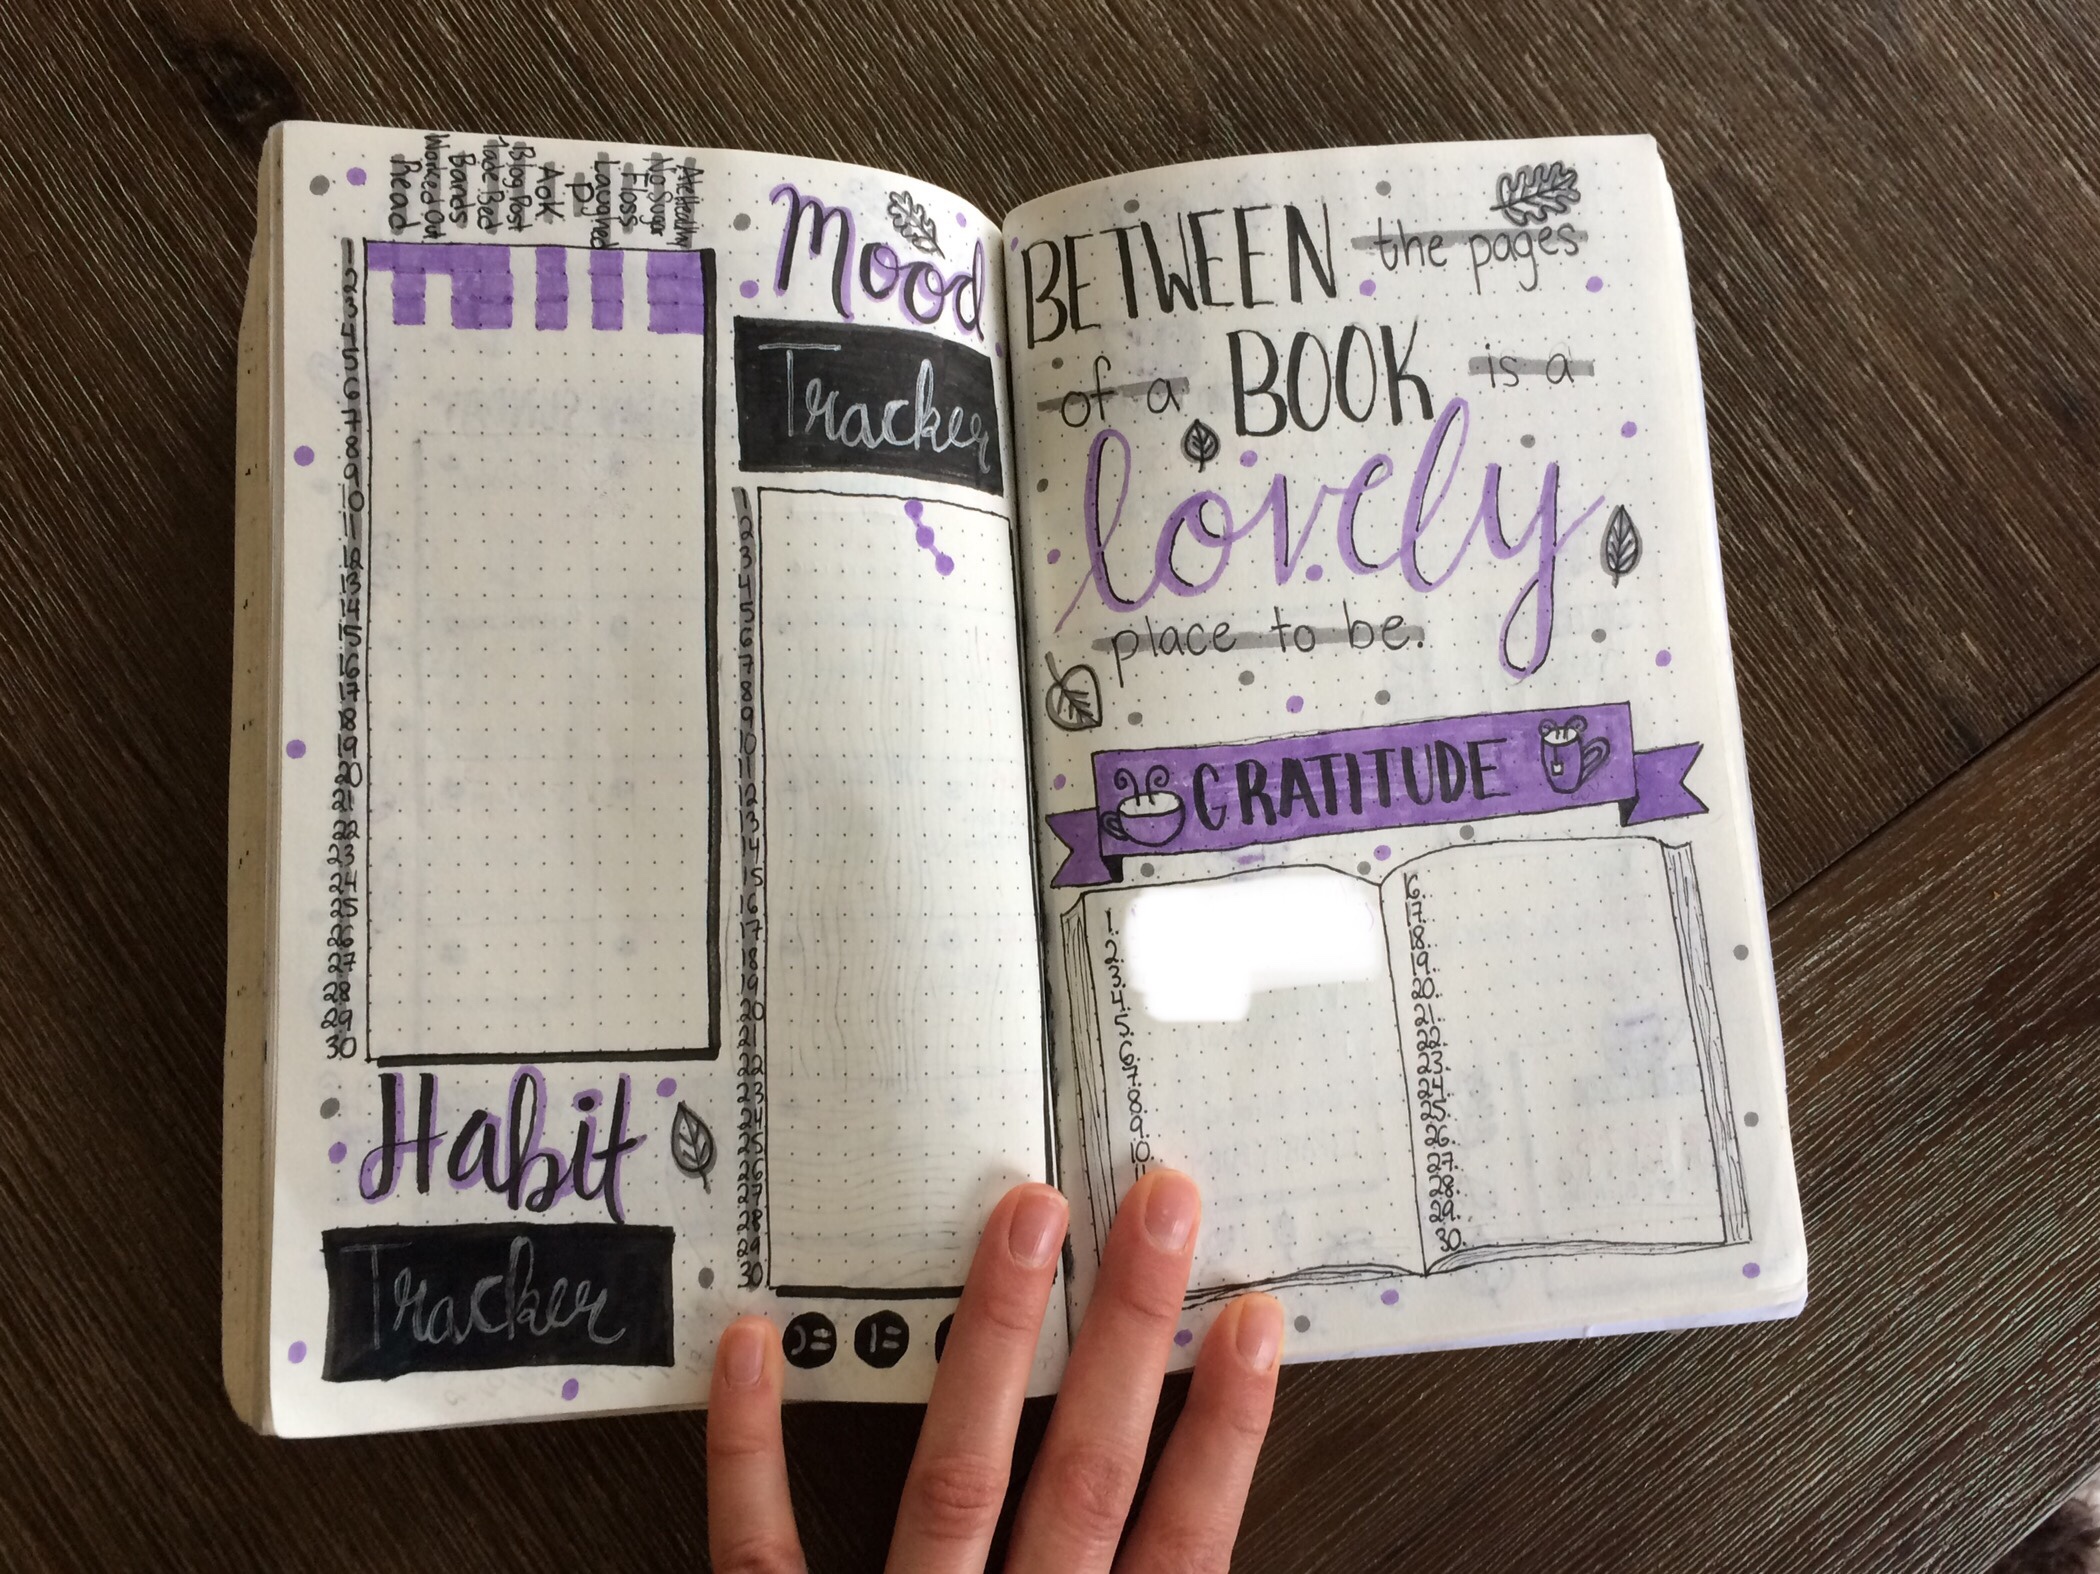 Read
Worked Out
Bands
Made Bed
Blog Post
AOK
P!
Laughed
Floss
No Sugar
Ate Healthy
1
2
3
4
5
6
7
8
9
10
11
12
13
14
15
16
17
18
19
20
21
22
23
24
25
26
27
28
29
30
Habit
Tracker
Mood
Tracker
1
2
3
4
5
6
7
8
9
10
11
12
13
14
15
16
17
18
19
20
21
22
23
24
25
26
27
28
29
30
BETWEEN the pages
of a BOOK is a
lovely
place to be.
GRATITUDE
1
2
3
4
5
6
7
8
9
10
11
16
17
18
19
20
21
22
23
24
25
26
27
28
29
30